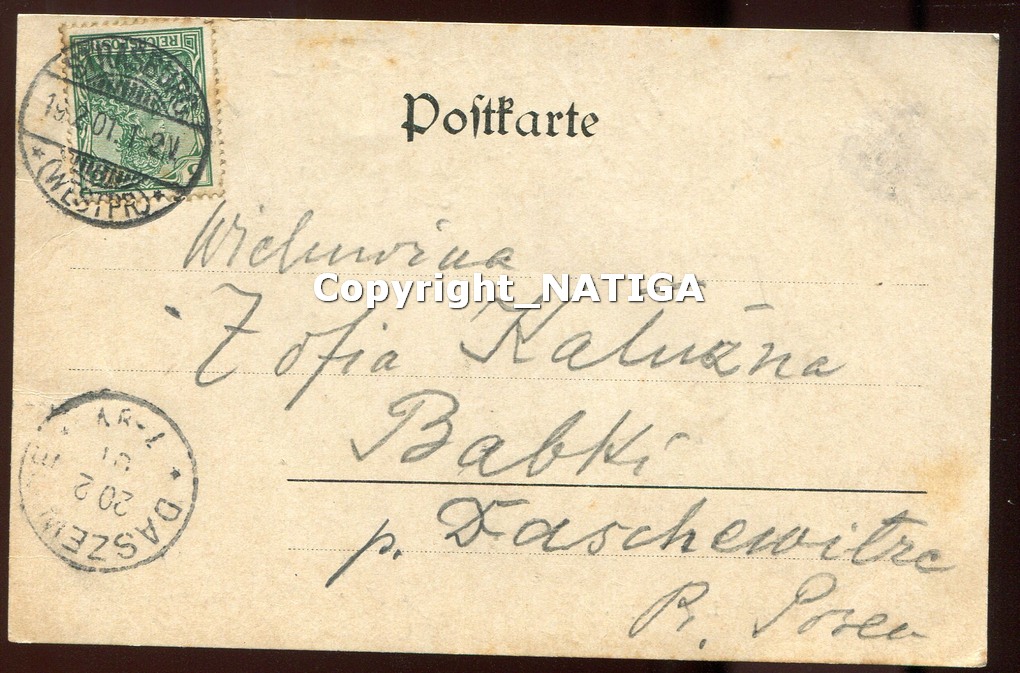 REICHSPOST
5
STRASBURG
19.2.01. 1-2N.
* (WESTPR) *
Postkarte
Wielmożna
Copyright_NATIGA
Zofia Kałużna
Babki
p. Daschewitze
R. Posen
* DASZEW
20 2
01